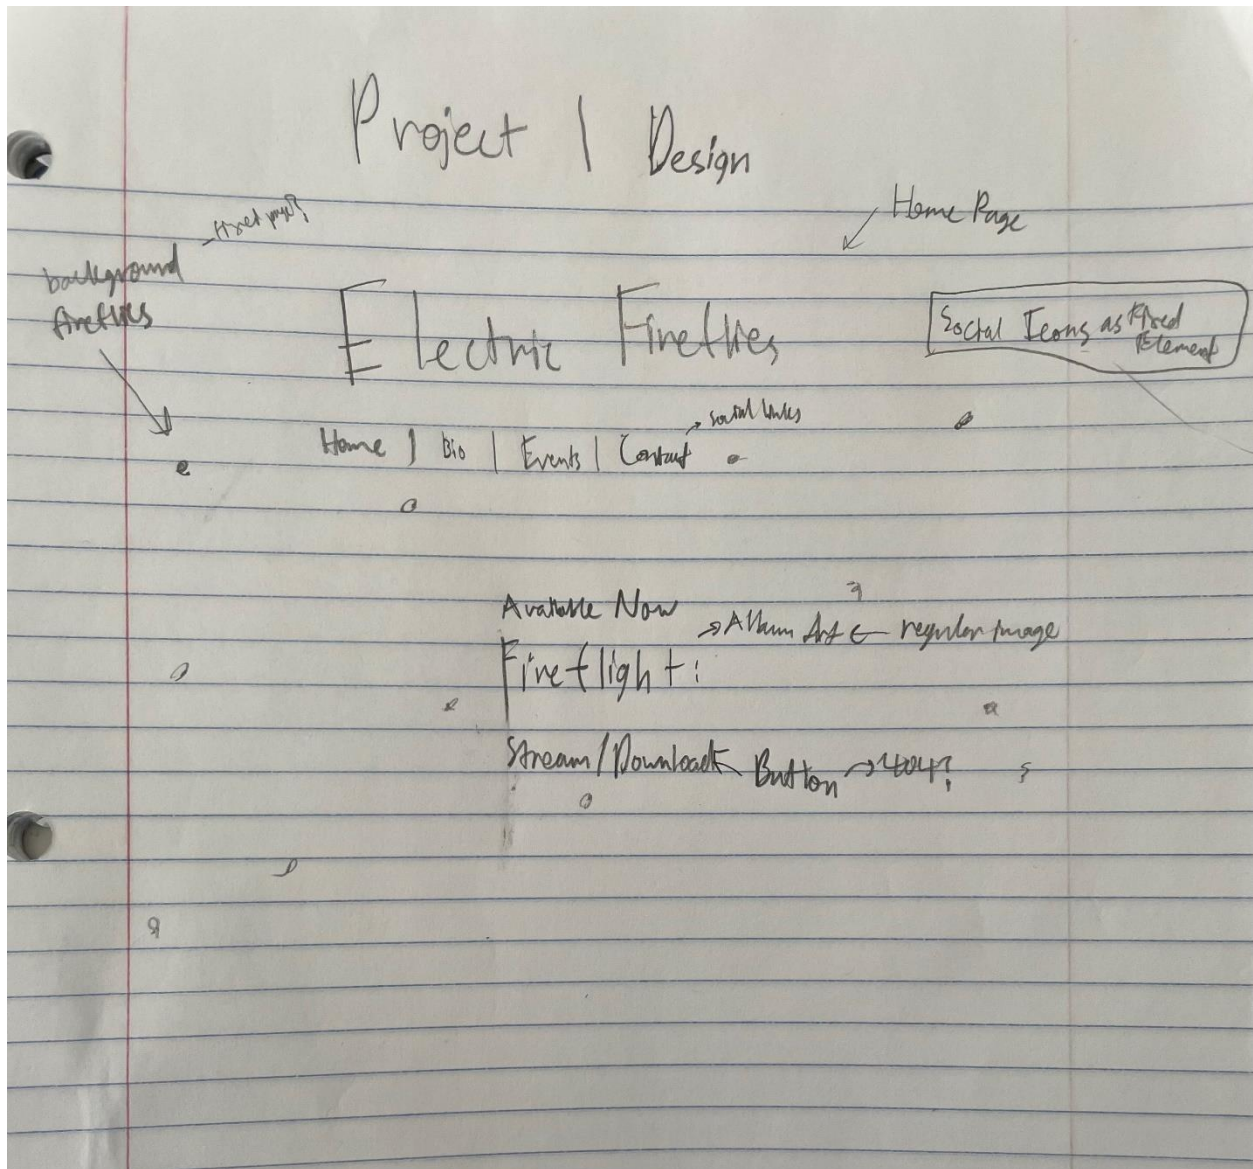 Project 1 Design
Home Page
background
fireflies
Electric Fireflies
Social Icons as Fixed
Element
social links
Home | Bio | Events | Contact
Available Now
→ Album Art ← regular image
Fireflight:
Stream/Download Button → 404?